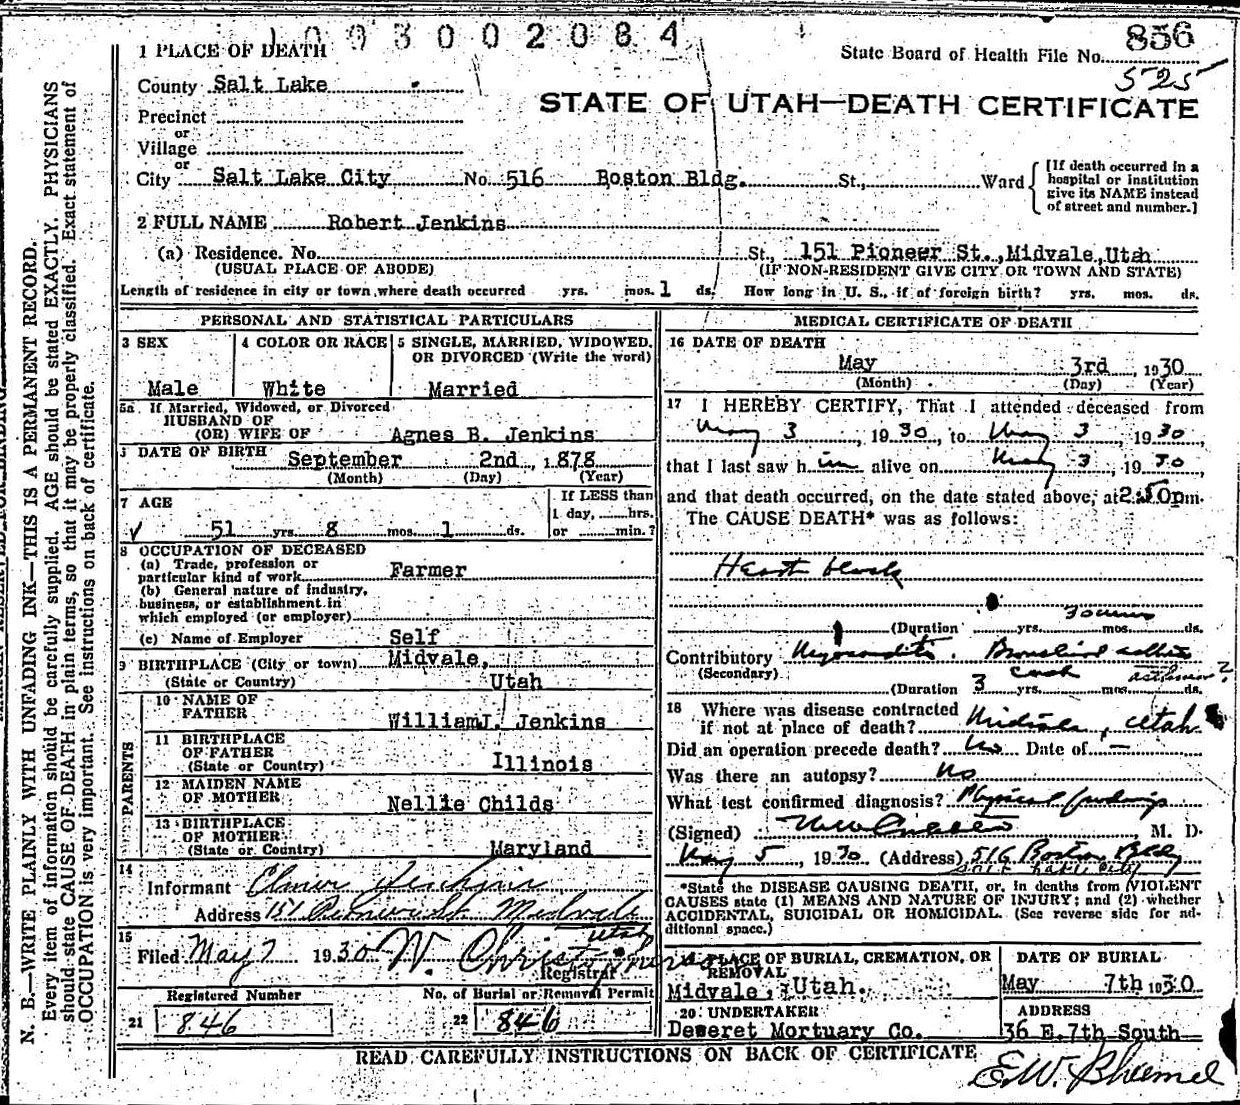 1003002084
1 PLACE OF DEATH
State Board of Health File No. 856
525
County Salt Lake
STATE OF UTAH—DEATH CERTIFICATE
Precinct
or
Village
or
City Salt Lake City No. 516 Boston Bldg. St., Ward
[If death occurred in a
hospital or institution
give its NAME instead
of street and number.]
2 FULL NAME Robert Jenkins
(a) Residence. No. St., 151 Pioneer St., Midvale, Utah
(USUAL PLACE OF ABODE) (IF NON-RESIDENT GIVE CITY OR TOWN AND STATE)
Length of residence in city or town where death occurred yrs. mos. 1 ds. How long in U. S., if of foreign birth? yrs. mos. ds.
PERSONAL AND STATISTICAL PARTICULARS
3 SEX
Male
4 COLOR OR RACE
White
5 SINGLE, MARRIED, WIDOWED,
OR DIVORCED (Write the word)
Married
5a If Married, Widowed, or Divorced
HUSBAND OF
(OR) WIFE OF Agnes B. Jenkins
DATE OF BIRTH September 2nd, 1878
(Month) (Day) (Year)
7 AGE
51 yrs. 8 mos. 1 ds.
If LESS than
1 day, hrs.
or min.?
8 OCCUPATION OF DECEASED
(a) Trade, profession or
particular kind of work Farmer
(b) General nature of industry,
business, or establishment in
which employed (or employer)
(c) Name of Employer Self
9 BIRTHPLACE (City or town) Midvale,
(State or Country) Utah
PARENTS
10 NAME OF
FATHER William J. Jenkins
11 BIRTHPLACE
OF FATHER
(State or Country) Illinois
12 MAIDEN NAME
OF MOTHER Nellie Childs
13 BIRTHPLACE
OF MOTHER
(State or Country) Maryland
14
Informant Elmer Jenkins
Address 151 Pioneer St. Midvale
Utah
15
Filed May 7 1930 W. Christophers
Registrar
Registered Number
21 846
No. of Burial or Removal Permit
22 846
MEDICAL CERTIFICATE OF DEATH
16 DATE OF DEATH
May 3rd, 1930
(Month) (Day) (Year)
17 I HEREBY CERTIFY, That I attended deceased from
May 3, 1930, to May 3, 1930
that I last saw him alive on May 3, 1930
and that death occurred, on the date stated above, at 2:50pm.
The CAUSE DEATH* was as follows:
Heart block
(Duration yrs. mos. ds.
Contributory Myocarditis. Bronchial asthma
(Secondary)
asthma?
(Duration 3 yrs. mos. ds.
18 Where was disease contracted
if not at place of death? Midvale, Utah
Did an operation precede death? No Date of —
Was there an autopsy? No
What test confirmed diagnosis? Physical findings
(Signed) , M. D.
May 5, 1930 (Address) 516 Boston Bldg
Salt Lake City
*State the DISEASE CAUSING DEATH, or, in deaths from VIOLENT
CAUSES state (1) MEANS AND NATURE OF INJURY; and (2) whether
ACCIDENTAL, SUICIDAL OR HOMICIDAL. (See reverse side for ad-
ditional space.)
PLACE OF BURIAL, CREMATION, OR
REMOVAL
Midvale, Utah.
DATE OF BURIAL
May 7th 1930
20 UNDERTAKER
Deseret Mortuary Co.
ADDRESS
36 E. 7th South
READ CAREFULLY INSTRUCTIONS ON BACK OF CERTIFICATE
E.W.
N. B.—WRITE PLAINLY WITH UNFADING INK—THIS IS A PERMANENT RECORD.
Every item of information should be carefully supplied. AGE should be stated EXACTLY. PHYSICIANS
should state CAUSE OF DEATH in plain terms, so that it may be properly classified. Exact statement of
OCCUPATION is very important. See instructions on back of certificate.